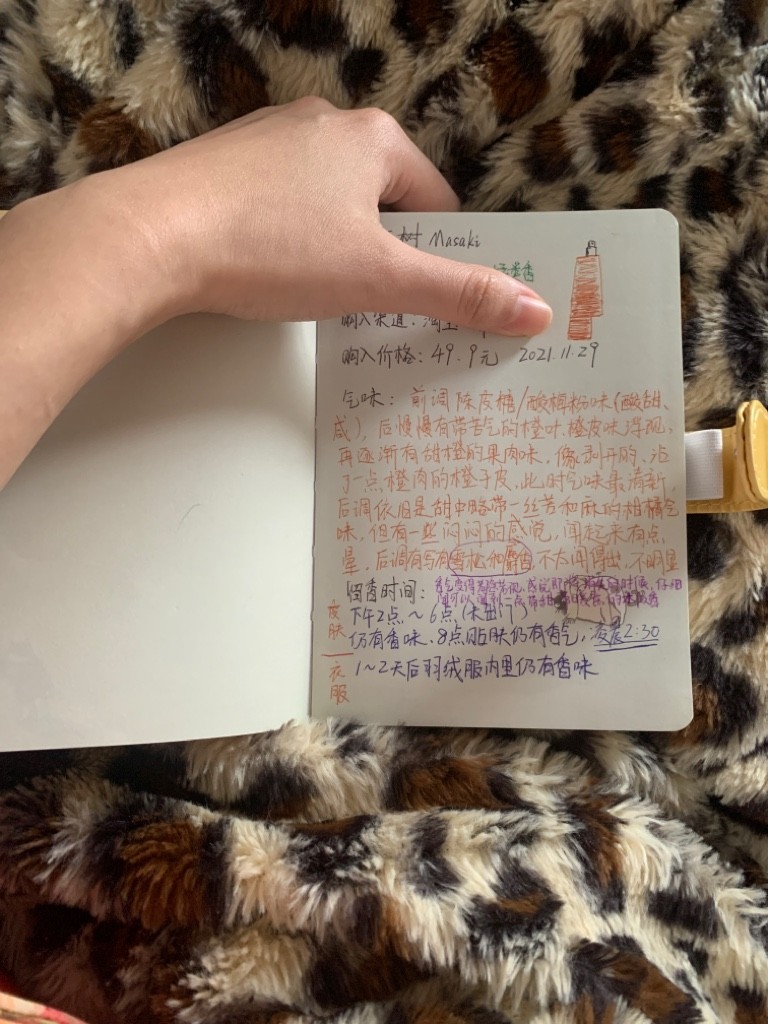 树 Masaki
购入渠道:淘宝
购入价格:49.9元 2021.11.29
气味:前调陈皮糖/酸梅粉味(酸甜、
咸),后慢慢有带苦气的橙叶、橙皮味浮现,
再逐渐有甜橙的果肉味,像剥开的、沾
了一点橙肉的橙子皮,此时气味最清新,
后调依旧是甜中略带一丝苦和麻的柑橘气
味,但有一些闷闷的感觉,闻起来有点
晕,后调有写有雪松和麝香,不太闻得出,不明显
留香时间:
皮肤
下午2点~6点(未出门)
仍有香味,8点贴肤仍有香气,凌晨2:30
衣服
1~2天后羽绒服内里仍有香味